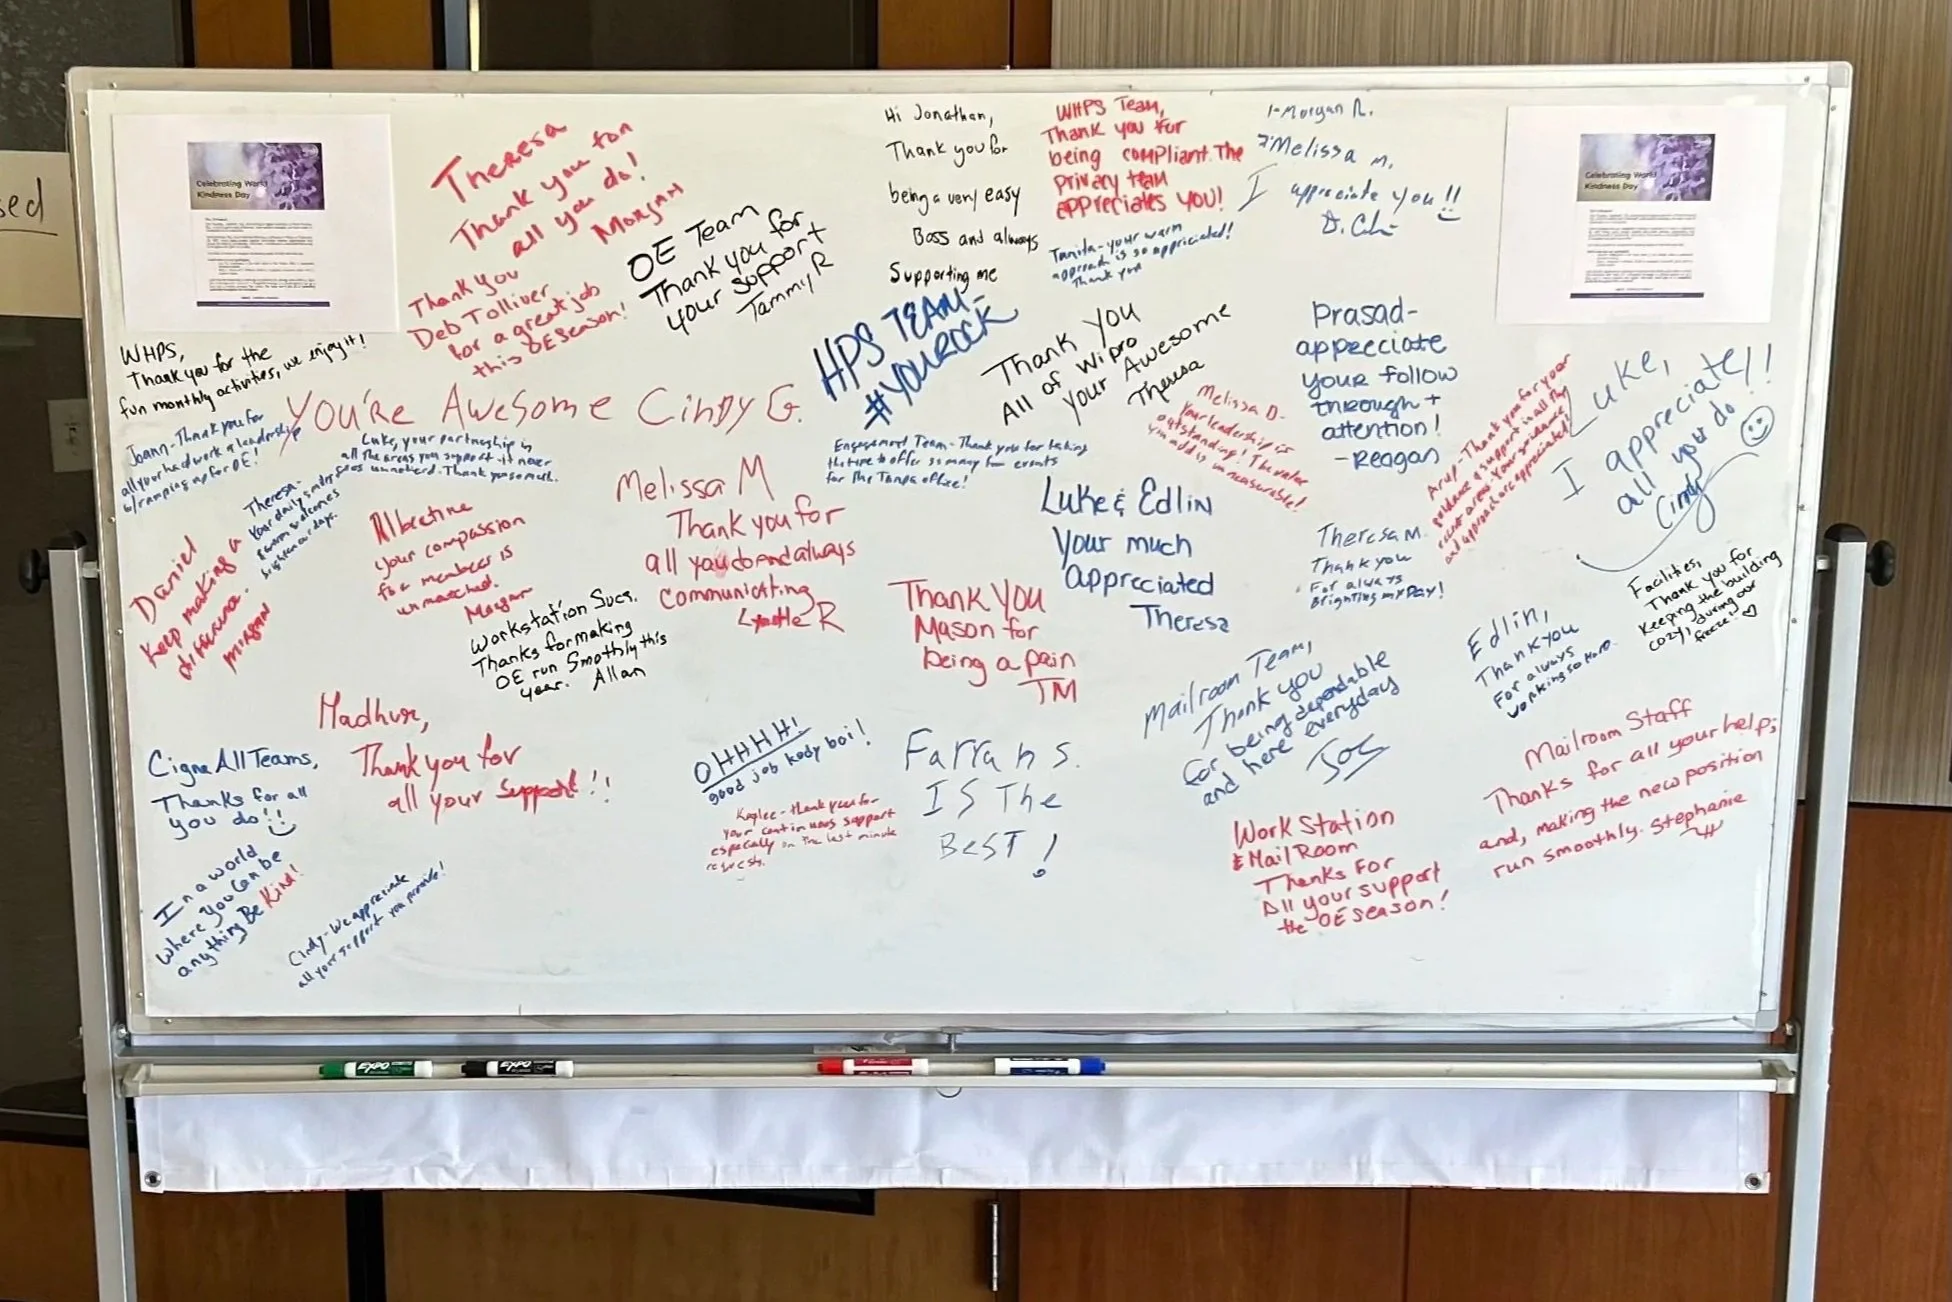 sed
Celebrating World
Kindness Day
Theresa
Thank you for
all you do!
Morgan
Thank you
Deb Tolliver
for a great job
this OE Season!
OE Team
Thank you for
your support
Tammy R
Hi Jonathan,
Thank you for
being a very easy
Boss and always
Supporting me
WHPS Team,
Thank you for
being compliant. The
privacy team
appreciates you!
1-Morgan R.
2-Melissa M.
I appreciate you!!
Tanita - your warm
approach is so appriciated!
Thank you
Celebrating World
Kindness Day
WHPS,
Thank you for the
fun monthly activities, we enjoy it!
HPS TEAM -
#YOUROCK
Thank you
All of Wipro
your Awesome
Theresa
Prasad-
appreciate
your follow
through +
attention!
-Reagan
Luke,
I appreciate
all you do!!
Cindy
You're Awesome Cindy G.
Joann - Thank you for
all your hard work & leadership
w/ ramping up for OE!
Luke, your partnership in
all the areas you support it never
goes unnoticed. Thank you so much.
Theresa-
Your daily smiles
& warm welcomes
brighten our days.
Engagement Team - Thank you for taking
the time to offer so many fun events
for The Tampa office!
Melissa D-
Your leadership is
outstanding! The value
you add is unmeasurable!
Arup - Thank you for your
guidance & support in all the
recent areas. Your guidance
and approach are appreciated!
Daniel
Keep making a
difference.
morgan
Albertine
your compassion
for members is
unmatched.
Morgan
Melissa M
Thank you for
all you do and always
communicating
Lynette R
Luke & Edlin
Your much
appreciated
Theresa
Theresa M.
Thank you
For always
Brighting my Day!
Facilities,
Thank you for
Keeping the building
cozy, during our
freeze!
Workstation Svcs.
Thanks for making
OE run Smothly this
year. Allan
Thank you
Mason for
being a pain
TM
Edlin,
Thank you
For always
working so Hard.
Mailroom Team,
Thank you
for being dependable
and here everyday
Joe
Madhur,
Thank you for
all your support!!
OHHHH!
good job kody boi!
Farrah S.
IS The
BEST!
Mailroom Staff
Thanks for all your help;
and, making the new position
run smoothly. Stephanie
Cigna All Teams,
Thanks for all
you do!!
Kaylee - thank you for
your continuous support
especially on the last minute
requests.
Work Station
& Mail Room
Thanks For
All your support
the OE season!
In a world
where you can be
anything Be Kind!
Cindy - We appreciate
all your support you provide!
EXPO
EXPO